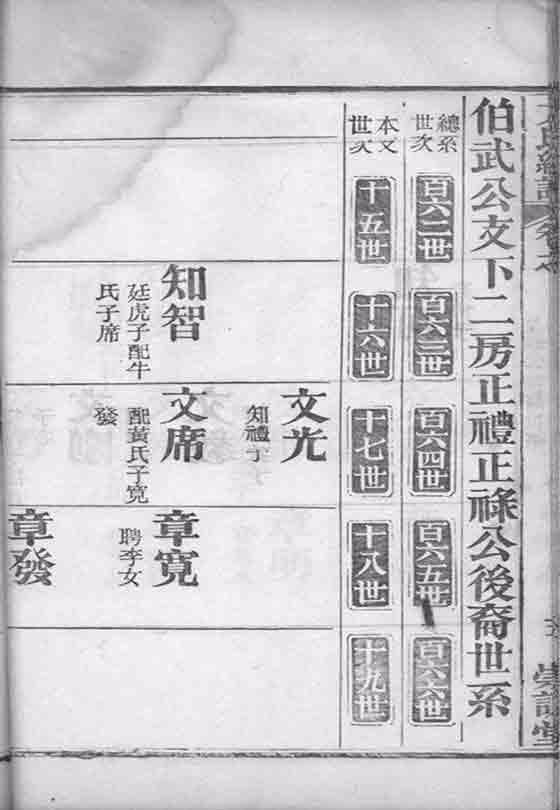 伯武公支下二房正禮正祿公後裔世系
總系世次
百六二世
百六三世
百六四世
百六五世
百六六世
本支世次
十五世
十六世
十七世
十八世
十九世
文光
知禮子
知智
廷虎子配牛
氏子席
文席
配黃氏子寬
發
章寬
聘李女
章發